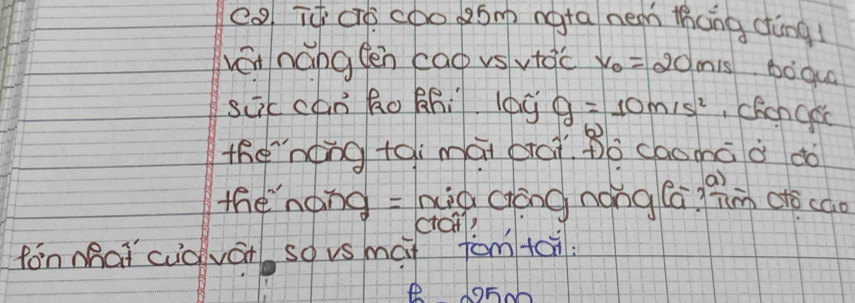 C2. Từ độ cao 25m ngta ném thẳng đứng 1
vật nặng lên cao vs vtốc v₀ = 20m/s. bỏ qua
sức cản ko khí. lấy g = 10m/s², chọn gốc
thế năng tại mặt đất. b) Độ cao mà ở đó
thế năng = nửa động năng là? a) Tìm độ cao
lớn nhất của vật so vs mặt đất? Tóm tắt:
h 25m